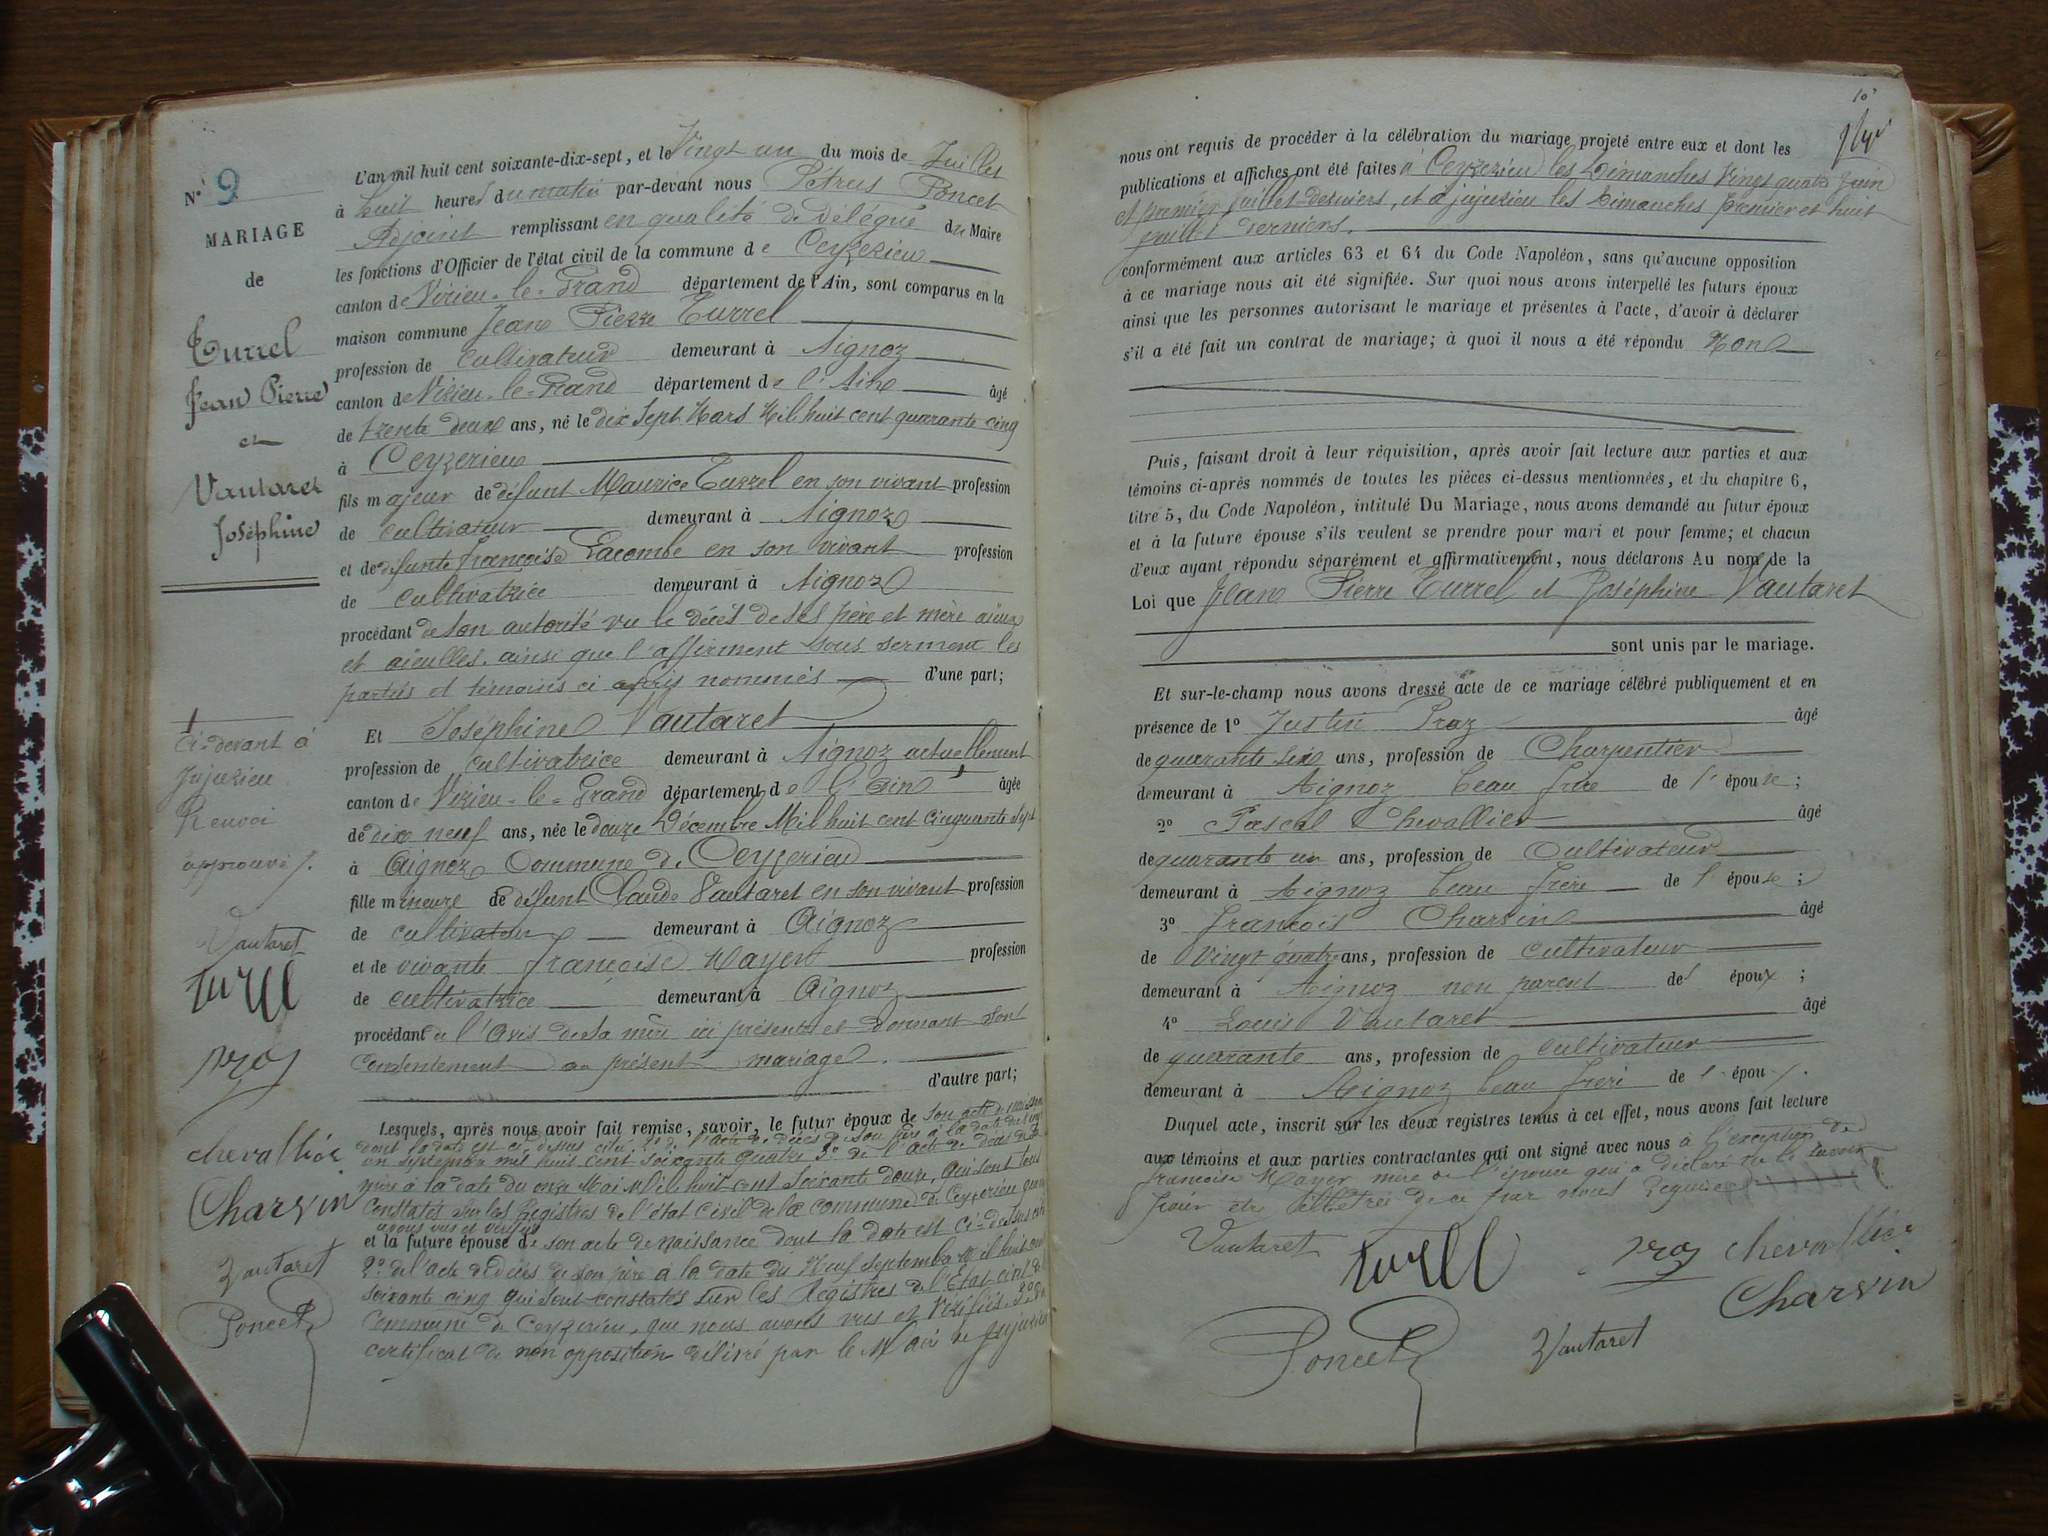 N° 9
MARIAGE
de
Turrel
Jean Pierre
et
Vautaret
Joséphine
L'an mil huit cent soixante-dix-sept, et le Vingt un du mois de Juillet
à huit heures du matin par-devant nous Pétrus Poncet
Adjoint remplissant en qualité de Délégué du Maire
les fonctions d'Officier de l'état civil de la commune de Ceyzerieu
canton de Virieu-le-Grand département de l'Ain, sont comparus en la
maison commune Jean Pierre Turrel
profession de cultivateur demeurant à Aignoz
canton de Virieu-le-Grand département de l'Ain âgé
de trente deux ans, né le dix sept Mars Mil huit cent quarante cinq
à Ceyzerieu
fils majeur de défunt Maurice Turrel en son vivant profession
de cultivateur demeurant à Aignoz
et de défunte Françoise Lacombe en son vivant profession
de cultivatrice demeurant à Aignoz
procédant de son autorité vu le décès de ses père et mère aïeux
et aïeulles, ainsi que l'affirment sous serment les
parties et témoins ci après nommés d'une part;
Et Joséphine Vautaret
profession de cultivatrice demeurant à Aignoz actuellement
canton de Virieu-le-Grand département de l'Ain âgée
de dix neuf ans, née le douze Décembre Mil huit cent cinquante sept
à Aignoz Commune de Ceyzerieu
fille mineure de défunt Claude Vautaret en son vivant profession
de cultivateur demeurant à Aignoz
et de vivante Françoise Mayer profession
de cultivatrice demeurant à Aignoz
procédant de l'Avis de sa mère ici présente et donnant son
consentement au présent mariage.
d'autre part;
Lesquels, après nous avoir fait remise, savoir, le futur époux de son acte de naissance
dont la date est ci-dessus cité, 2° de l'acte de décès de son père à la date du vingt
un septembre mil huit cent soixante quatre 3° de l'acte de décès de sa
mère à la date du onze Mai Mil huit cent soixante douze, qui sont tous
constatés sur les Registres de l'état civil de la commune de Ceyzerieu que nous
avons vus et vérifiés
et la future épouse de son acte de naissance dont la date est ci-dessus cité
2° de l'acte de décès de son père à la date du Neuf Septembre Mil huit cent
soixante cinq qui sont constatés sur les Registres de l'Etat civil de
Commune de Ceyzerieu, que nous avons vus et Vérifiés. 3° Un
certificat de non opposition délivré par le Maire de Jujurieu
Ci-devant à
Jujurieu
Renvoi
approuvé
Vautaret
turell
praz
chevallier
Charvin
Vautaret
Poncet
10
nous ont requis de procéder à la célébration du mariage projeté entre eux et dont les
publications et affiches ont été faites à Ceyzerieu les Dimanches Vingt quatre Juin
et premier juillet derniers, et à jujurieu les Dimanches premier et huit
juillet derniers.
conformément aux articles 63 et 64 du Code Napoléon, sans qu'aucune opposition
à ce mariage nous ait été signifiée. Sur quoi nous avons interpellé les futurs époux
ainsi que les personnes autorisant le mariage et présentes à l'acte, d'avoir à déclarer
s'il a été fait un contrat de mariage; à quoi il nous a été répondu Non
Puis, faisant droit à leur réquisition, après avoir fait lecture aux parties et aux
témoins ci-après nommés de toutes les pièces ci-dessus mentionnées, et du chapitre 6,
titre 5, du Code Napoléon, intitulé Du Mariage, nous avons demandé au futur époux
et à la future épouse s'ils veulent se prendre pour mari et pour femme; et chacun
d'eux ayant répondu séparément et affirmativement, nous déclarons Au nom de la
Loi que Jean Pierre Turrel et Joséphine Vautaret
sont unis par le mariage.
Et sur-le-champ nous avons dressé acte de ce mariage célébré publiquement et en
présence de 1° Justin Praz âgé
de quarante six ans, profession de Charpentier
demeurant à Aignoz beau frère de l'épouse;
2° Pascal Chevallier âgé
de quarante un ans, profession de Cultivateur
demeurant à Aignoz beau frère de l'épouse;
3° François Charvin âgé
de Vingt quatre ans, profession de cultivateur
demeurant à Aignoz non parent des époux;
4° Louis Vautaret âgé
de quarante ans, profession de cultivateur
demeurant à Aignoz beau frère de l'épou
Duquel acte, inscrit sur les deux registres tenus à cet effet, nous avons fait lecture
aux témoins et aux parties contractantes qui ont signé avec nous à l'exception de
Françoise Mayer mère de l'épouse qui a déclaré ne le savoir
pour être illettrée de ce par nous requise
Vautaret turell praz chevallier
Charvin
Poncet Vautaret